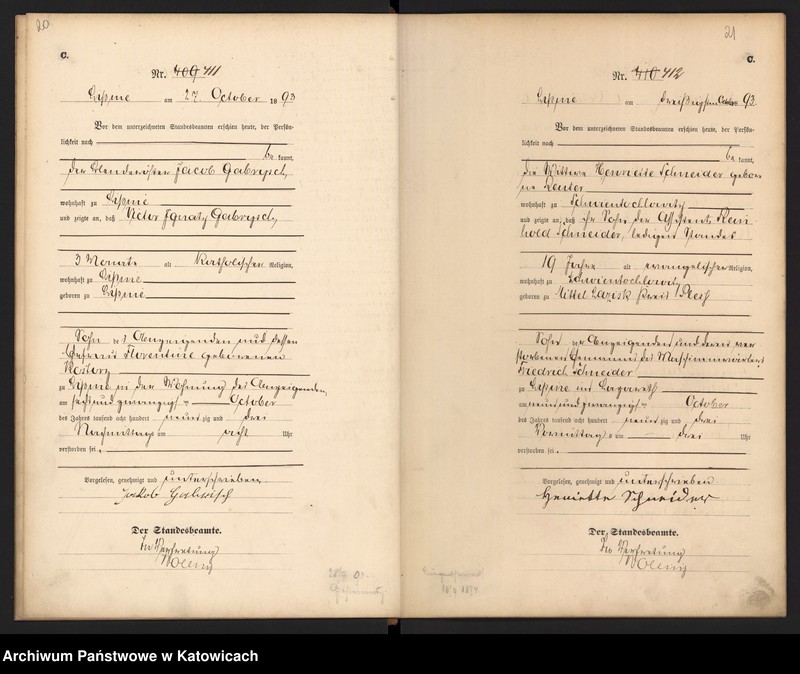 20
C.
Nr. 409 411
Lipine am 27. October 1893
Vor dem unterzeichneten Standesbeamten erschien heute, der Persön-
lichkeit nach
be kannt,
der Jacob Gabrysch,
wohnhaft zu Lipine
und zeigte an, daß Victor Ignatz Gabrysch,
3 Monate alt katholischer Religion,
wohnhaft zu Lipine
geboren zu Lipine
Sohn des Anzeigenden und dessen
Ehefrau Florentine geborenen
zu Lipine in der Wohnung des Anzeigenden,
am sechsundzwanzigsten October
des Jahres tausend acht hundert neunzig und drei
Nachmittags um acht Uhr
verstorben sei.
Vorgelesen, genehmigt und unterschrieben
Jakob Gabrisch
Der Standesbeamte.
In Vertretung
21
C.
Nr. 410 412
Lipine am dreißigsten October 93.
Vor dem unterzeichneten Standesbeamten erschien heute, der Persön-
lichkeit nach
be kannt,
die Wittwe Henriette Schneider gebore-
ne Reuter
wohnhaft zu Schwientochlowitz
und zeigte an, daß ihr Sohn der Assistent Rein-
hold Schneider, ledigen Standes
19 Jahre alt evangelischer Religion,
wohnhaft zu Schwientochlowitz
geboren zu Mittel Lazisk Kreis Pleß
Sohn der Anzeigenden und deren ver-
storbenen Ehemannes des
Friedrich Schneider
zu Lipine im Lazareth
am neunundzwanzigsten October
des Jahres tausend acht hundert neunzig und drei
Vormittags um drei Uhr
verstorben sei.
Vorgelesen, genehmigt und unterschrieben
Henriette Schneider
Der Standesbeamte.
In Vertretung
Archiwum Państwowe w Katowicach